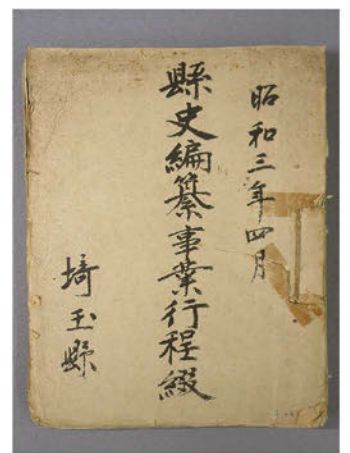 昭和三年四月
縣史編纂事業行程綴
埼玉縣